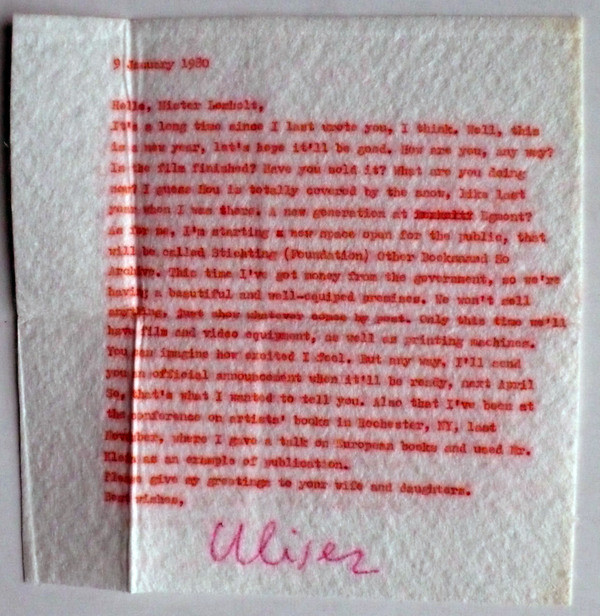 9 January 1980
Hello, Mister Lomholt,
It's a long time since I last wrote you, I think. Well, this
is a new year, let's hope it'll be good. How are you, any way?
Is the film finished? Have you sold it? What are you doing
now? I guess Hou is totally covered by the snow, like last
year when I was there. A new generation at Egmont?
As for me, I'm starting a new space open for the public, that
will be called Stichting (Foundation) Other Books and So
Archive. This time I've got money from the government, so we're
having a beautiful and well-equiped premises. We won't sell
anything, just show whatever comes by post. Only this time we'll
have film and video equipment, as well as printing machines.
You can imagine how excited I feel. But any way, I'll send
you an official announcement when it'll be ready, next April
So, that's what I wanted to tell you. Also that I've been at
the conference on artists' books in Rochester, NY, last
November, where I gave a talk on European books and used Mr.
Klein as an example of publication.
Please give my greetings to your wife and daughters.
Best wishes,
Ulises